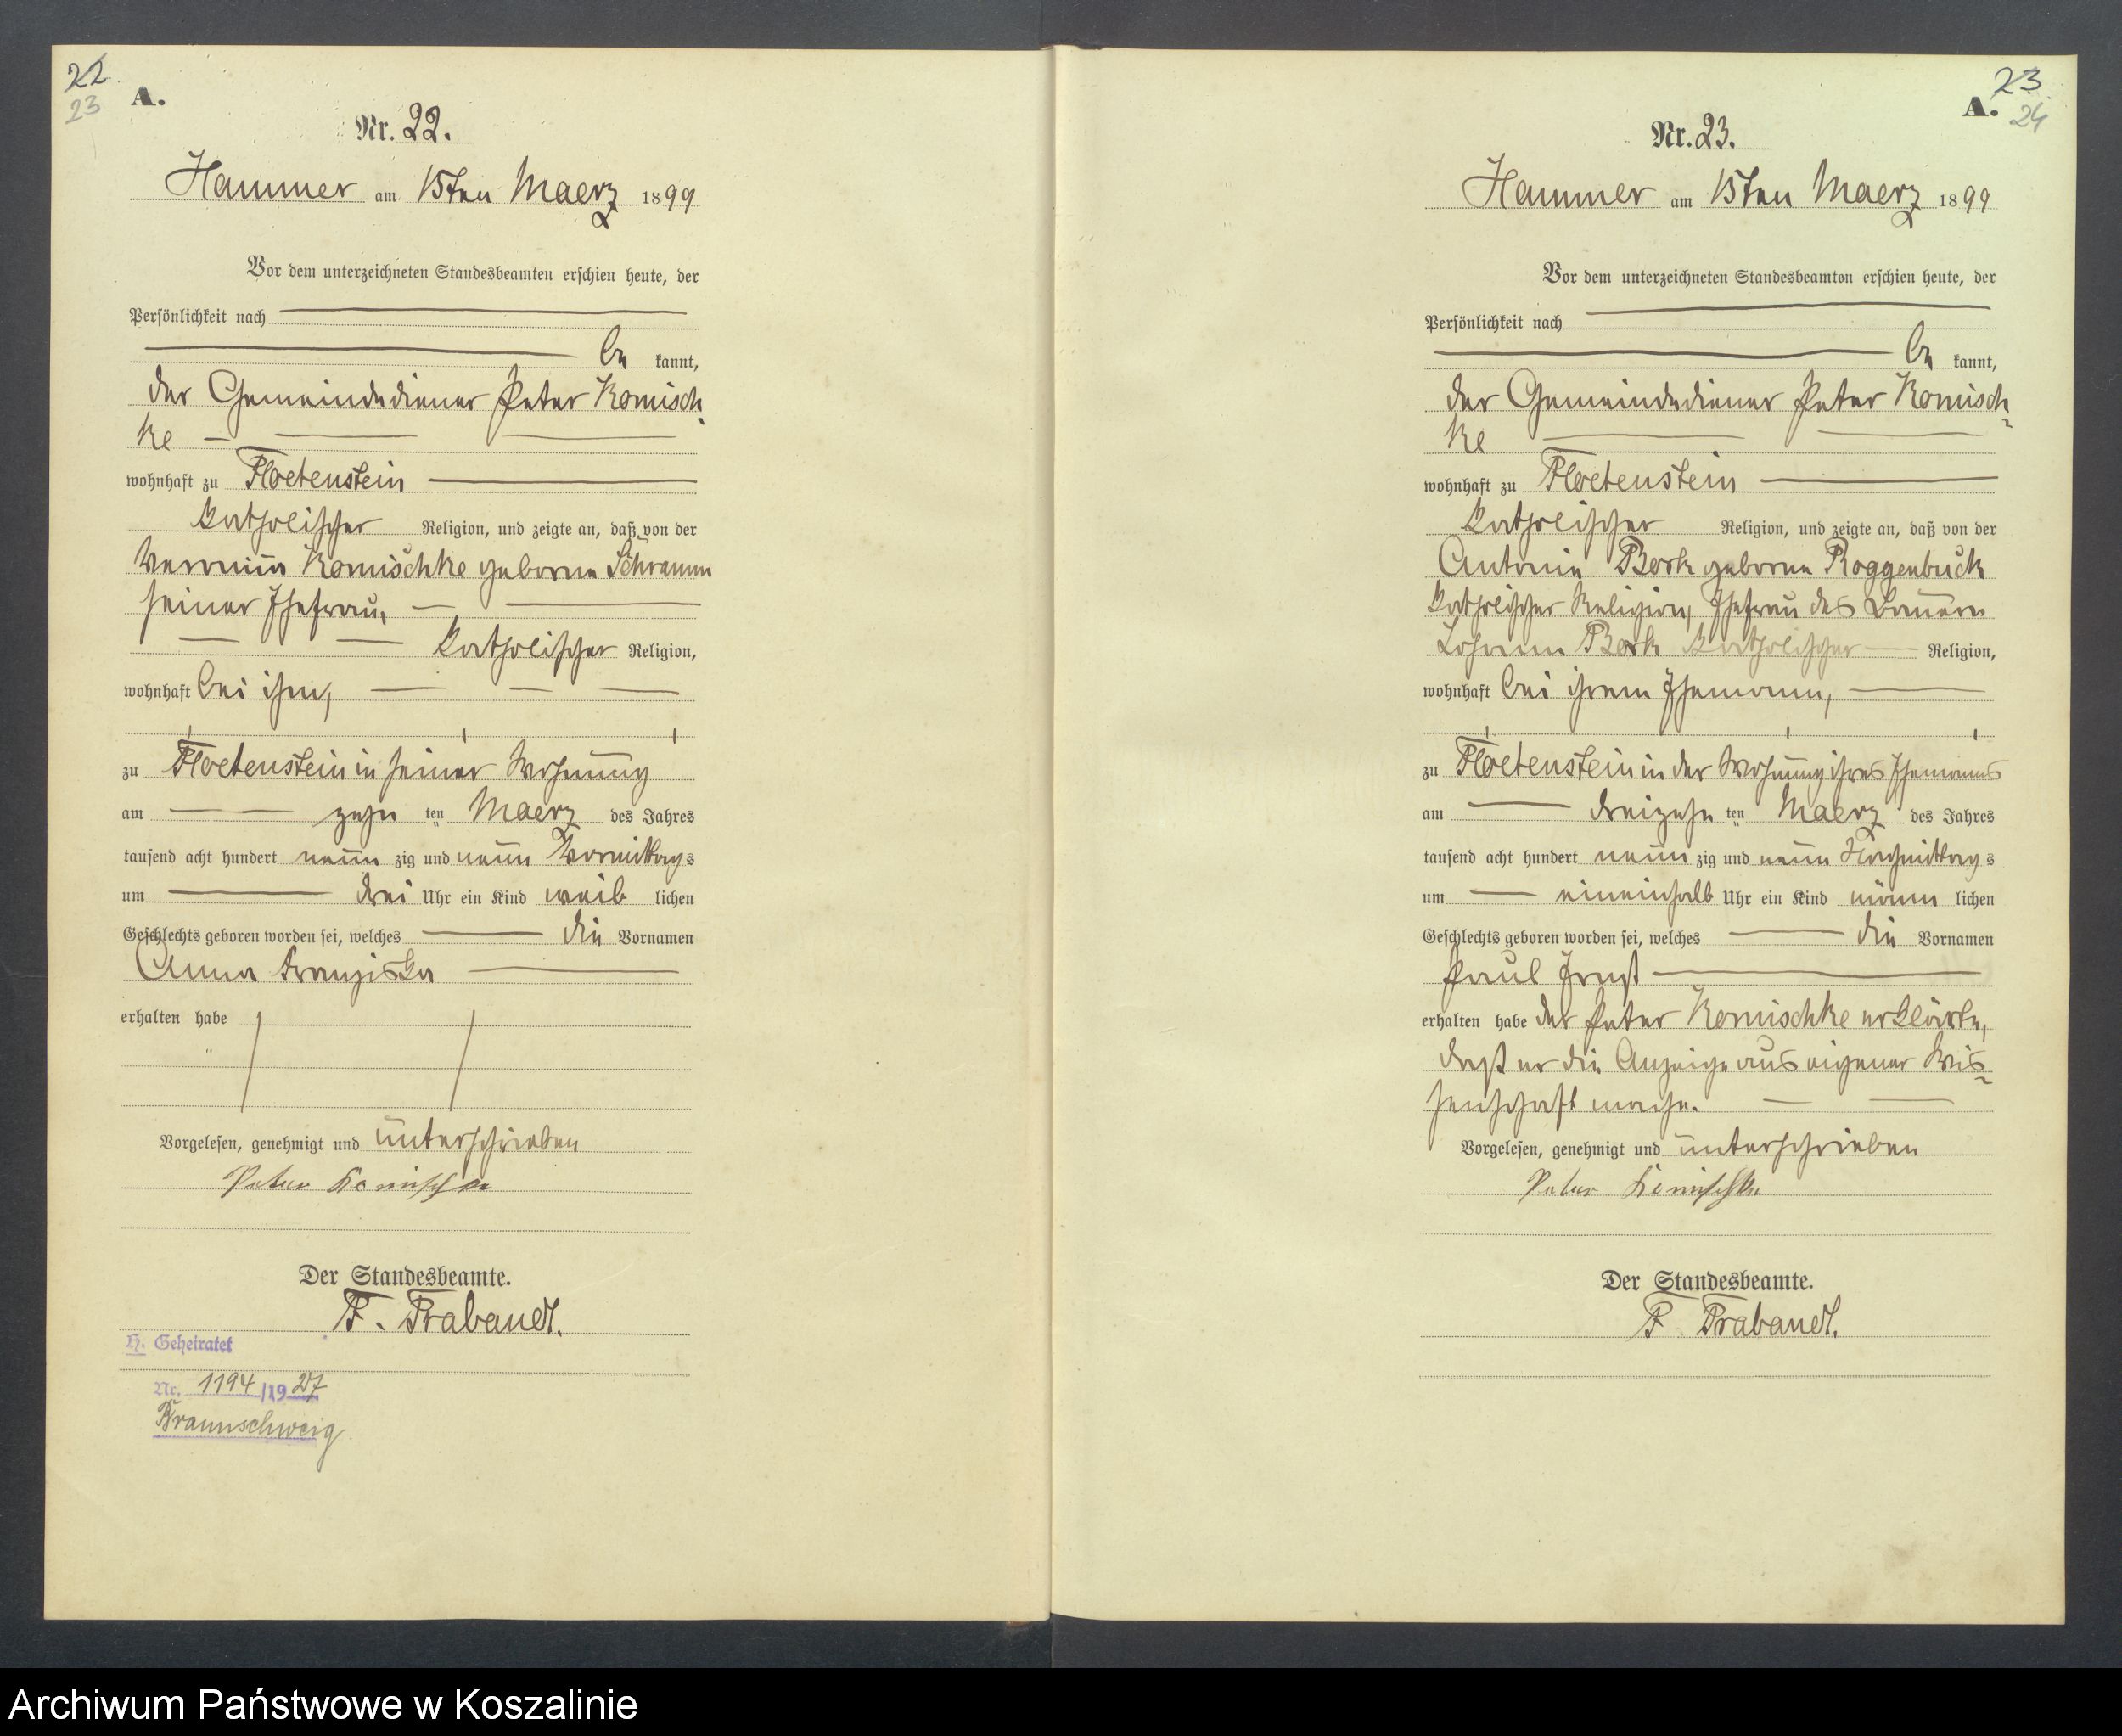 22
23
A.
Nr. 22.
Hammer am 15ten Maerz 1899
Vor dem unterzeichneten Standesbeamten erschien heute, der
Persönlichkeit nach
be kannt,
der Gemeindediener Peter Komisch-
ke
wohnhaft zu Floetenstein
katholischer Religion, und zeigte an, daß von der
Veronica Komischke geborne Schramm
seiner Ehefrau,
katholischer Religion,
wohnhaft bei ihm,
zu Floetenstein in seiner Wohnung
am zehn ten Maerz des Jahres
tausend acht hundert neun zig und neun Vormittags
um drei Uhr ein Kind weib lichen
Geschlechts geboren worden sei, welches die Vornamen
Anna Franziska
erhalten habe
Vorgelesen, genehmigt und unterschrieben
Peter Komischke
Der Standesbeamte.
F. Trabandt.
H. Geheiratet
Nr. 1194/1927
Braunschweig
23
A. 24
Nr. 23.
Hammer am 15ten Maerz 1899
Vor dem unterzeichneten Standesbeamten erschien heute, der
Persönlichkeit nach
be kannt,
der Gemeindediener Peter Komisch-
ke
wohnhaft zu Floetenstein
katholischer Religion, und zeigte an, daß von der
Antonie Bork geborne Roggenbuck
katholischer Religion, Ehefrau des Bauern
Johann Bork katholischer Religion,
wohnhaft bei ihrem Ehemann,
zu Floetenstein in der Wohnung ihres Ehemanns
am dreizehn ten Maerz des Jahres
tausend acht hundert neun zig und neun Nachmittags
um eineinhalb Uhr ein Kind männ lichen
Geschlechts geboren worden sei, welches die Vornamen
Paul Ernst
erhalten habe der Peter Komischke erklärte,
daß er die Anzeige aus eigener Wis-
senschaft mache.
Vorgelesen, genehmigt und unterschrieben
Peter Komischke
Der Standesbeamte.
F. Trabandt.
Archiwum Państwowe w Koszalinie